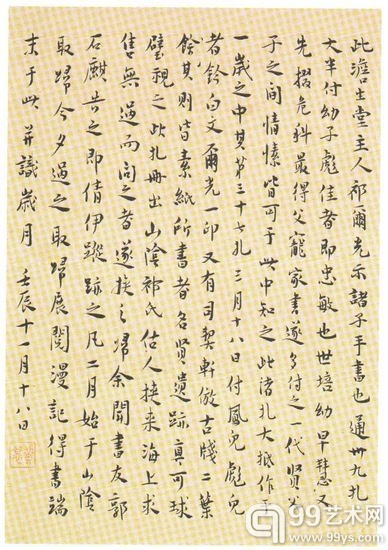 此澹生堂主人祁爾光示諸子手書也通卅九札
大半付幼子彪佳者即忠敏也世培幼早慧又
先掇危科最得父寵家書遂多付之一代賢父
子之間情愫皆可于此中知之此諸札大抵作于
一歲之中其第三十七札三月十八日付鳳兒彪兒
者鈐白文爾光一印又有司契軒倣古牋二葉
餘其則皆素紙所書者名賢遺跡真可球
璧視之此札冊出山陰祁氏估人挾來海上求
售無過而問之者遂挾之歸余聞書友郭
石麒告之即倩伊蹤跡之凡二月始于山陰
取歸今夕過之取歸展閱漫記得書端
末于此并識歲月 壬辰十一月十八日
99艺术网
www.99ys.com